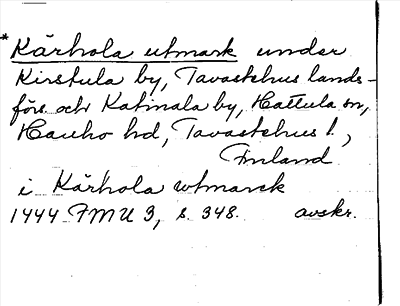 * Kärhola utmark under
Kirstula by, Tavastehus lands-
förs. och Katinala by, Hattula sn,
Hauho hd, Tavastehus l.,
Finland
i Kärhola wtmarck
1444 FMU 3, s. 348. avskr.